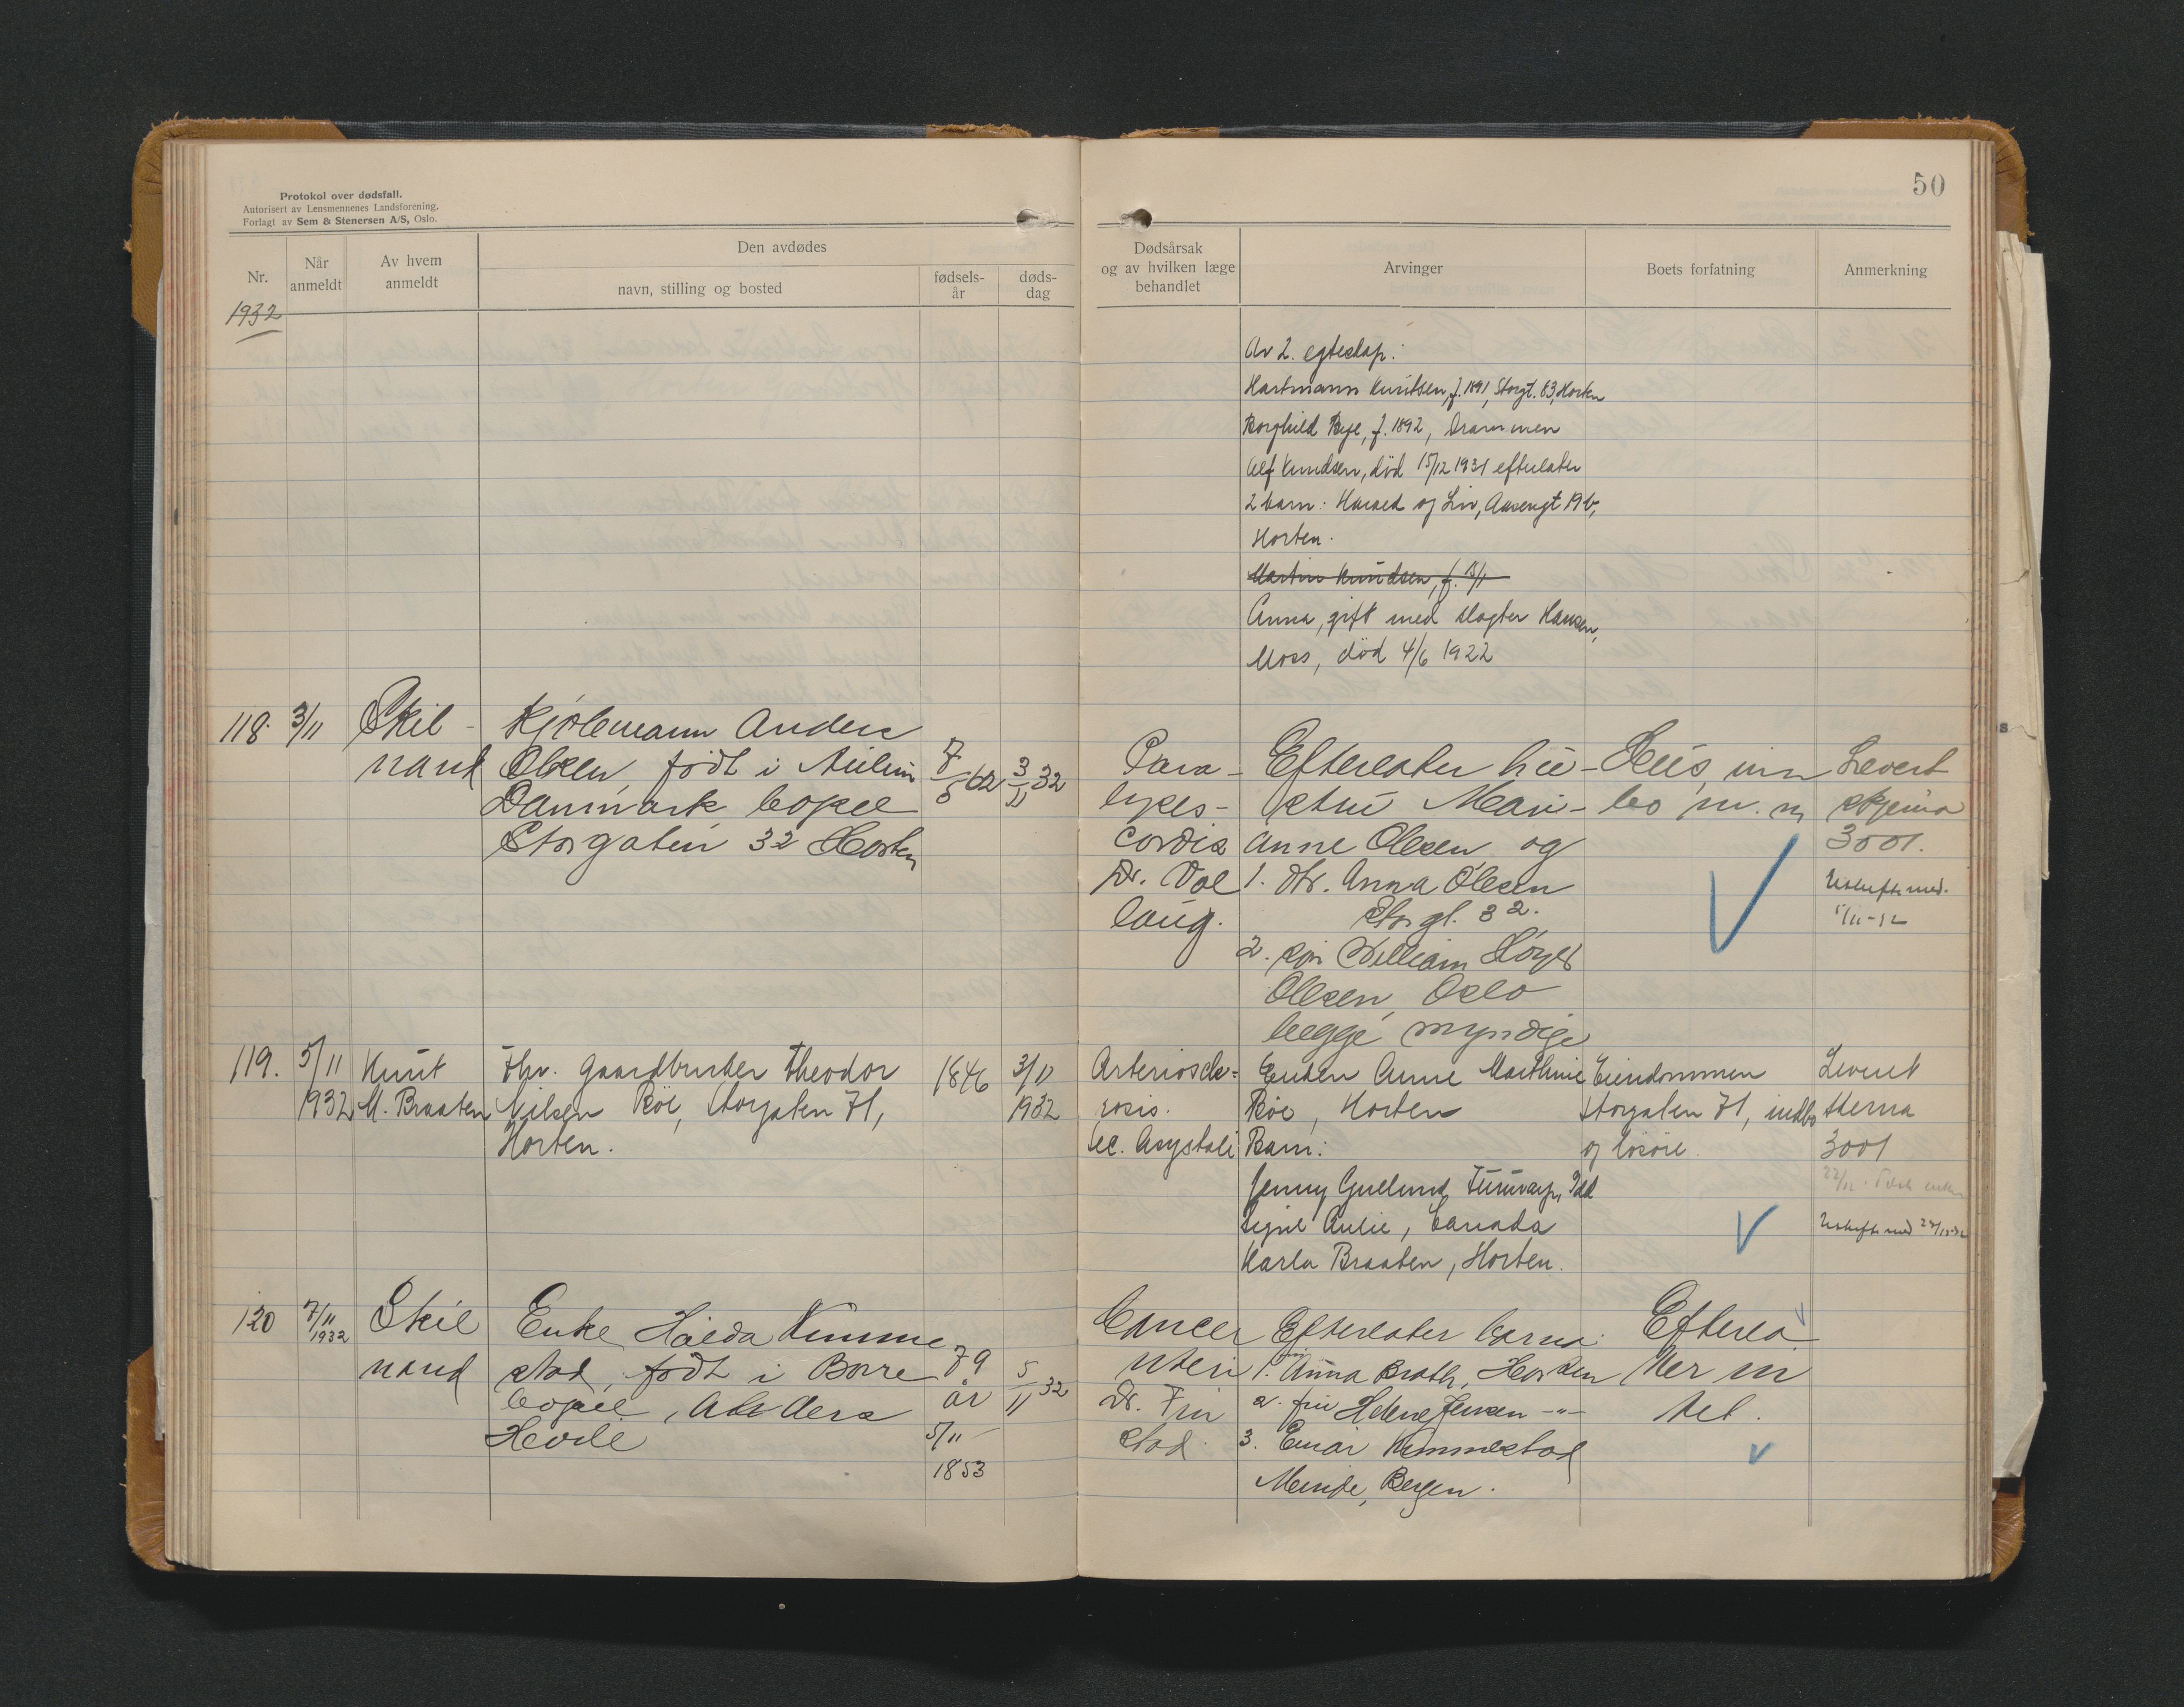 Protokol over dødsfall.
Autorisert av Lensmennenes Landsforening.
Forlagt av Sem & Stenersen A/S, Oslo.
50
Nr.
Når anmeldt
Av hvem anmeldt
Den avdødes
navn, stilling og bosted
fødsels-år
døds-dag
Dødsårsak og av hvilken læge behandlet
Arvinger
Boets forfatning
Anmerkning
1932
Av 2. egteskap:
Hartmann Knutsen, f. 1891, Storgt. 83, Horten
Borghild Bye, f. 1892, Drammen
Alf Knudsen, død 15/12 1931 efterlater
2 barn: Harald og Liv, Aasengt 19b,
Horten.
Martin Knudsen, f. 15/1
Anna, gift med slagter Hansen,
Moss, død 4/6 1922
118. 3/11
Skil-
nand
Kjølemann Anders
Olsen, født i
Danmark bopæl
Storgaten 32 Horten
7/5 62
3/11 32
Para-
lyses-
cordis
Dr. Dal
laug.
Efterlater hu-
stru Mari-
anne Olsen og
1. dtr. Anna Olsen
Storgt. 32.
2. søn William
Olsen, Oslo
begge myndige
Hus, inn
bo m. m,
Levert
skjema
3001.
119. 5/11
1932
Knut
M. Braaten
Fhv. gaardbruker Theodor
Nilsen Bøe, Storgaten 71,
Horten.
1846
3/11
1932
Arterioscle-
rosis.
ec. Asystoli
Enken Anne Mathinie
Bøe, Horten
Barn:
Jenny Gullund,
Signe Aulie, Canada
Karla Braaten, Horten.
Eiendommen
Storgaten 71, indbo
og løsøre.
Levert
skema
3001
120
7/11
1932
Skil
nand
Enke Hilda Kimme
stad, født i Borre
bopæl,
79
år
5/11
1853
5/11 32
Cancer
uteri
Dr. Fin
stad.
Efterlater barna:
1. Anna Brath, Horten
2. fru Helene Jensen -"-
3. Einar Kimmestad
Minde, Bergen.
Efterla
ter in
tet.